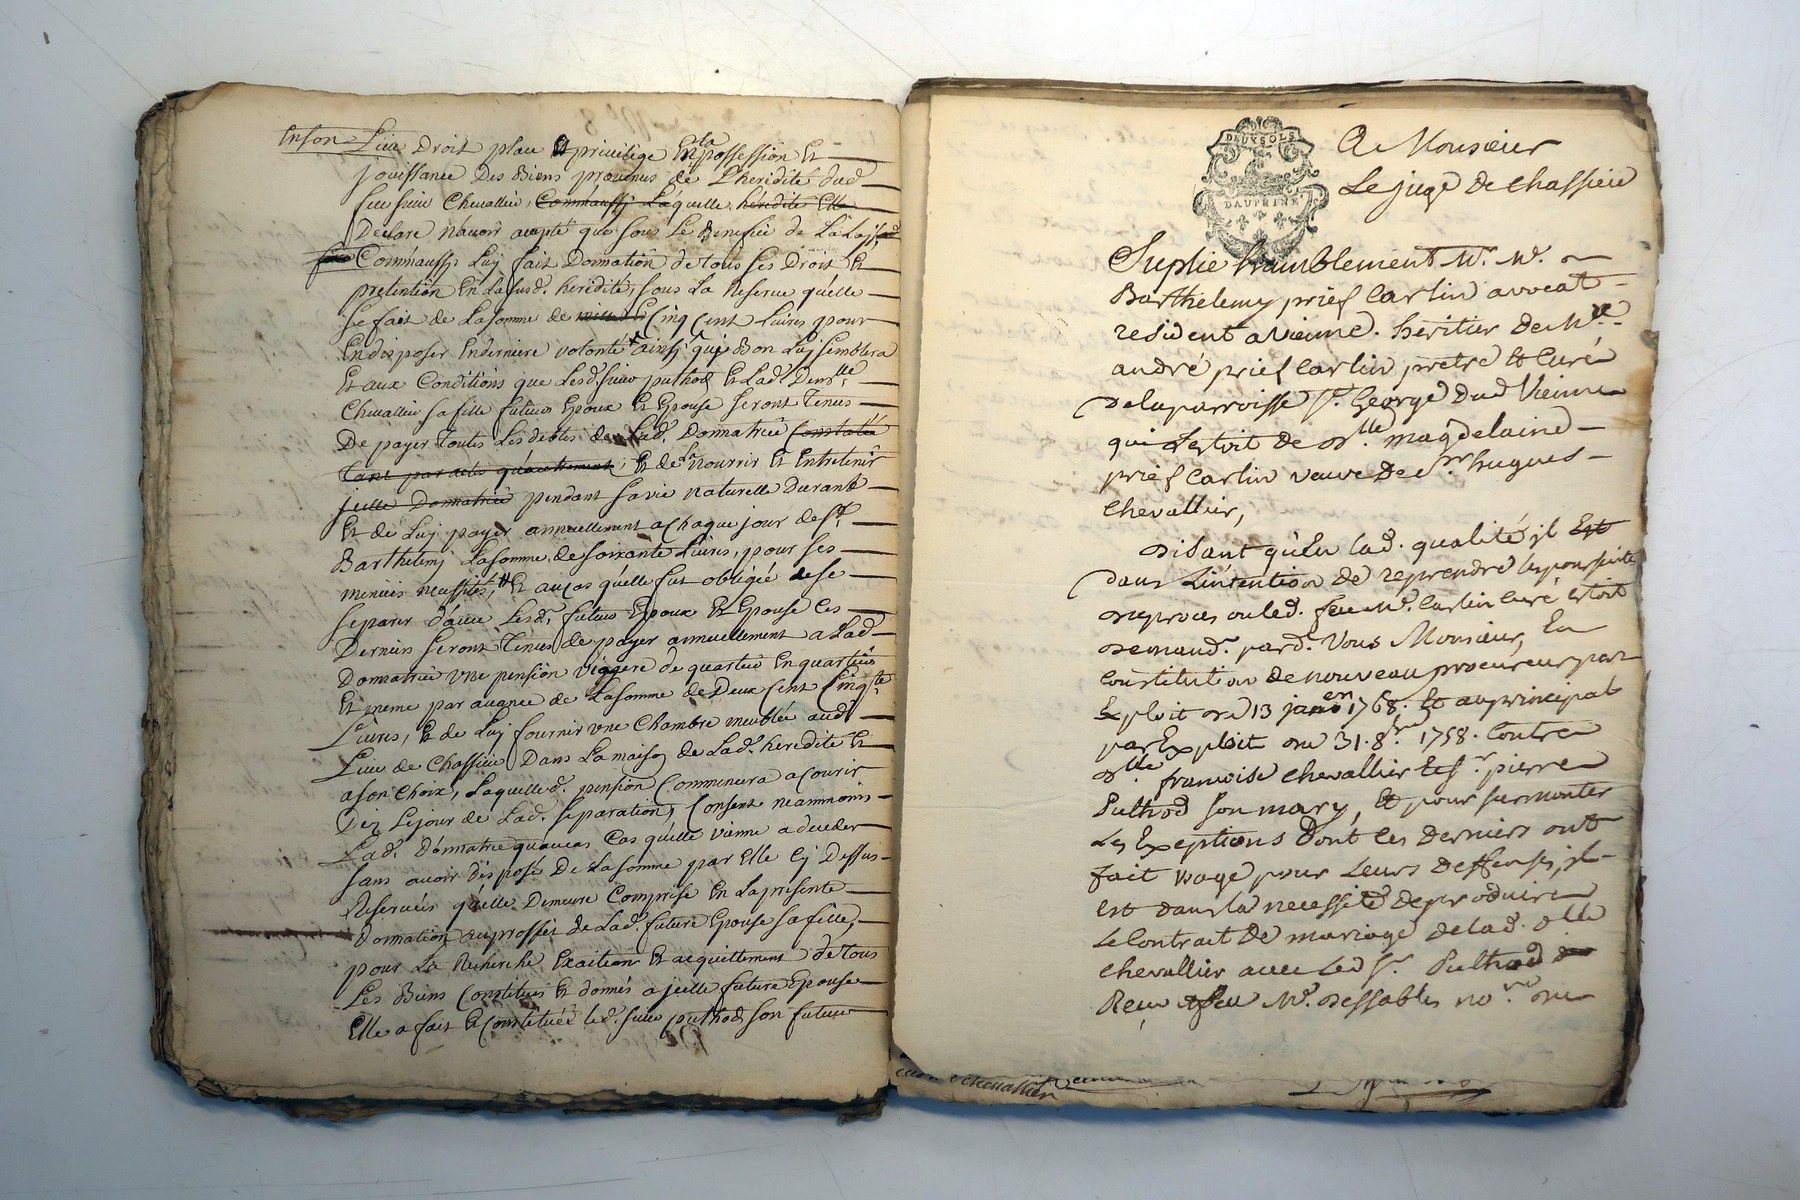 Enson Lieu Droit place Et privilege Et la possession Et
jouissance Des Biens provenus de L'heredité dud
feu sieur Chevallier, Commaussy Laquelle heredité Elle
Declare n'avoir accepté que sous Le Benefice de La Loy
Commaussy Luy fait Donnation de tous ses Droit Et
pretention En Lasusd. heredité, sous La Reserve quelle
se fait de La somme de Cinq Cent Livres pour
En disposer En derniere volonté ainsy que Bon Luy semblera
Et aux Conditions que Lesd. sieur puthod Et Lad. Demlle
Chevallier sa fille futurs Epoux Et Epouse seront Tenus
De payer Toutes Les debtes de Lad. Donnatrice Constatée
Tant par actes qu'autrement, Et de La nourrir Et Entretenir
jcelle Donnatrice pendant sa vie naturelle Durant
Et de Luy payer annuellement a Chaque jour de St
Barthelemj La somme de soixante Livres, pour ses
menues necessités, Et au cas quelle fut obligée de se
separer d'avec Lesd. futurs Epoux Et Epouse Ces
Derniers seront Tenus de payer annuellement a Lad.
Donnatrice une pension viagere de quartier En quartier
Et meme par avance de La somme de Deux Cent Cinqte
Livres, Et de Luy fournir une Chambre meublée aud.
Lieu de Chassieu Dans La maison de Lad. heredité Et
a son Choix, Laquelle d. pension Commencera a Courir
Dez Le jour de Lad. separation, Consent neanmoins
Lad. Donnatrice qu'au cas quelle vienne a deceder
sans avoir disposé De La somme par Elle Cy Dessus
Reservées quelle Demeure Comprise En La presente
Donnation au proffit de Lad. future Epouse sa fille,
pour La Recherche Exaction Et acquittement de Tous
Les Biens Constitués Et donnés a jcelle future Epouse
Elle a fait Et Constitué led. sieur puthod son futur
DEUX SOLS
DAUPHINE
A Monsieur
Le juge De Chassieu
Suplie humblement Mr. Me.
Barthelemy prief Carlin avocat
resident a vienne. heritier de Mre
andré prief Carlin pretre Et Curé
de la parroisse St. George Dud Vienne
qui L'estoit de Dlle. magdelaine
prief Carlin veuve De Sr hugues
Chevallier,
Disant qu'En lad. qualité jl Est
dans L'intention de reprendre les poursuite
du proces ou led. feu Me. Carlin Curé Estoit
demandr. pard. Vous Monsieur, En
Constitution de nouveau procureur par
Exploit du 13 janer 1768; Et au principal
par Exploit du 31. 8r. 1758. Contre
Dlle. françoise Chevallier Et Sr. pierre
Puthod son mary, Et pour surmonter
Les Exceptions Dont Ces Derniers ont
fait usage pour Leurs Deffenses, jl
est dans la necessité De produire
Le Contrait De mariage de lad. Dlle
Chevallier avec Led Sr. Puthod
Reçu feu Me. Dessables nore. du